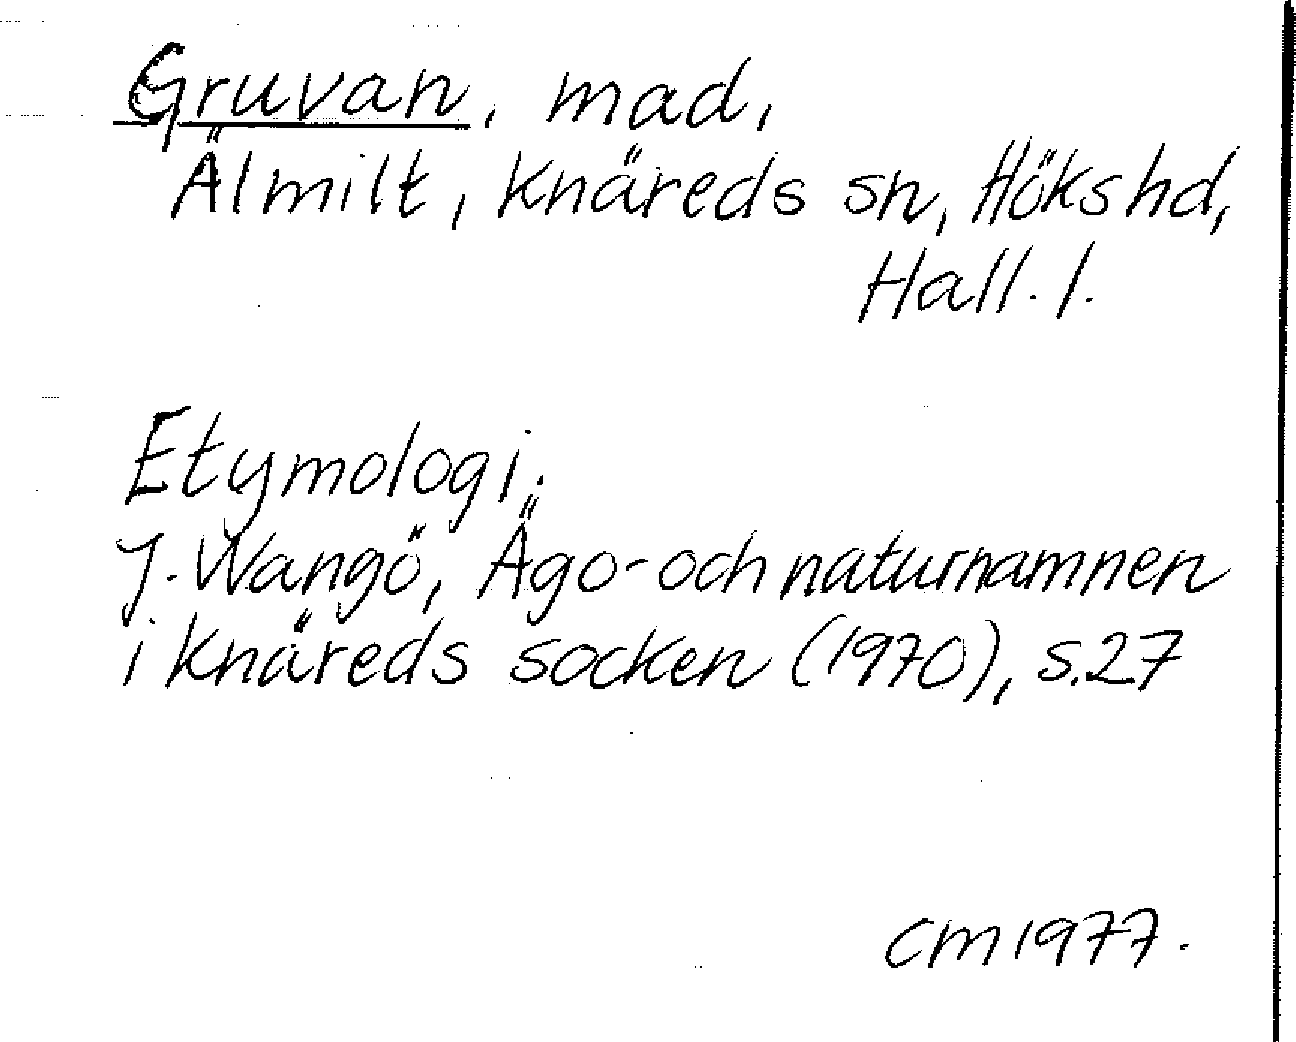 Gruvan, mad,
Älmilt, Knäreds sn, Höks hd,
Hall. l.
Etymologi.
J. Wangö, Ägo- och naturnamnen
i Knäreds socken (1970), s.27
CM 1977.